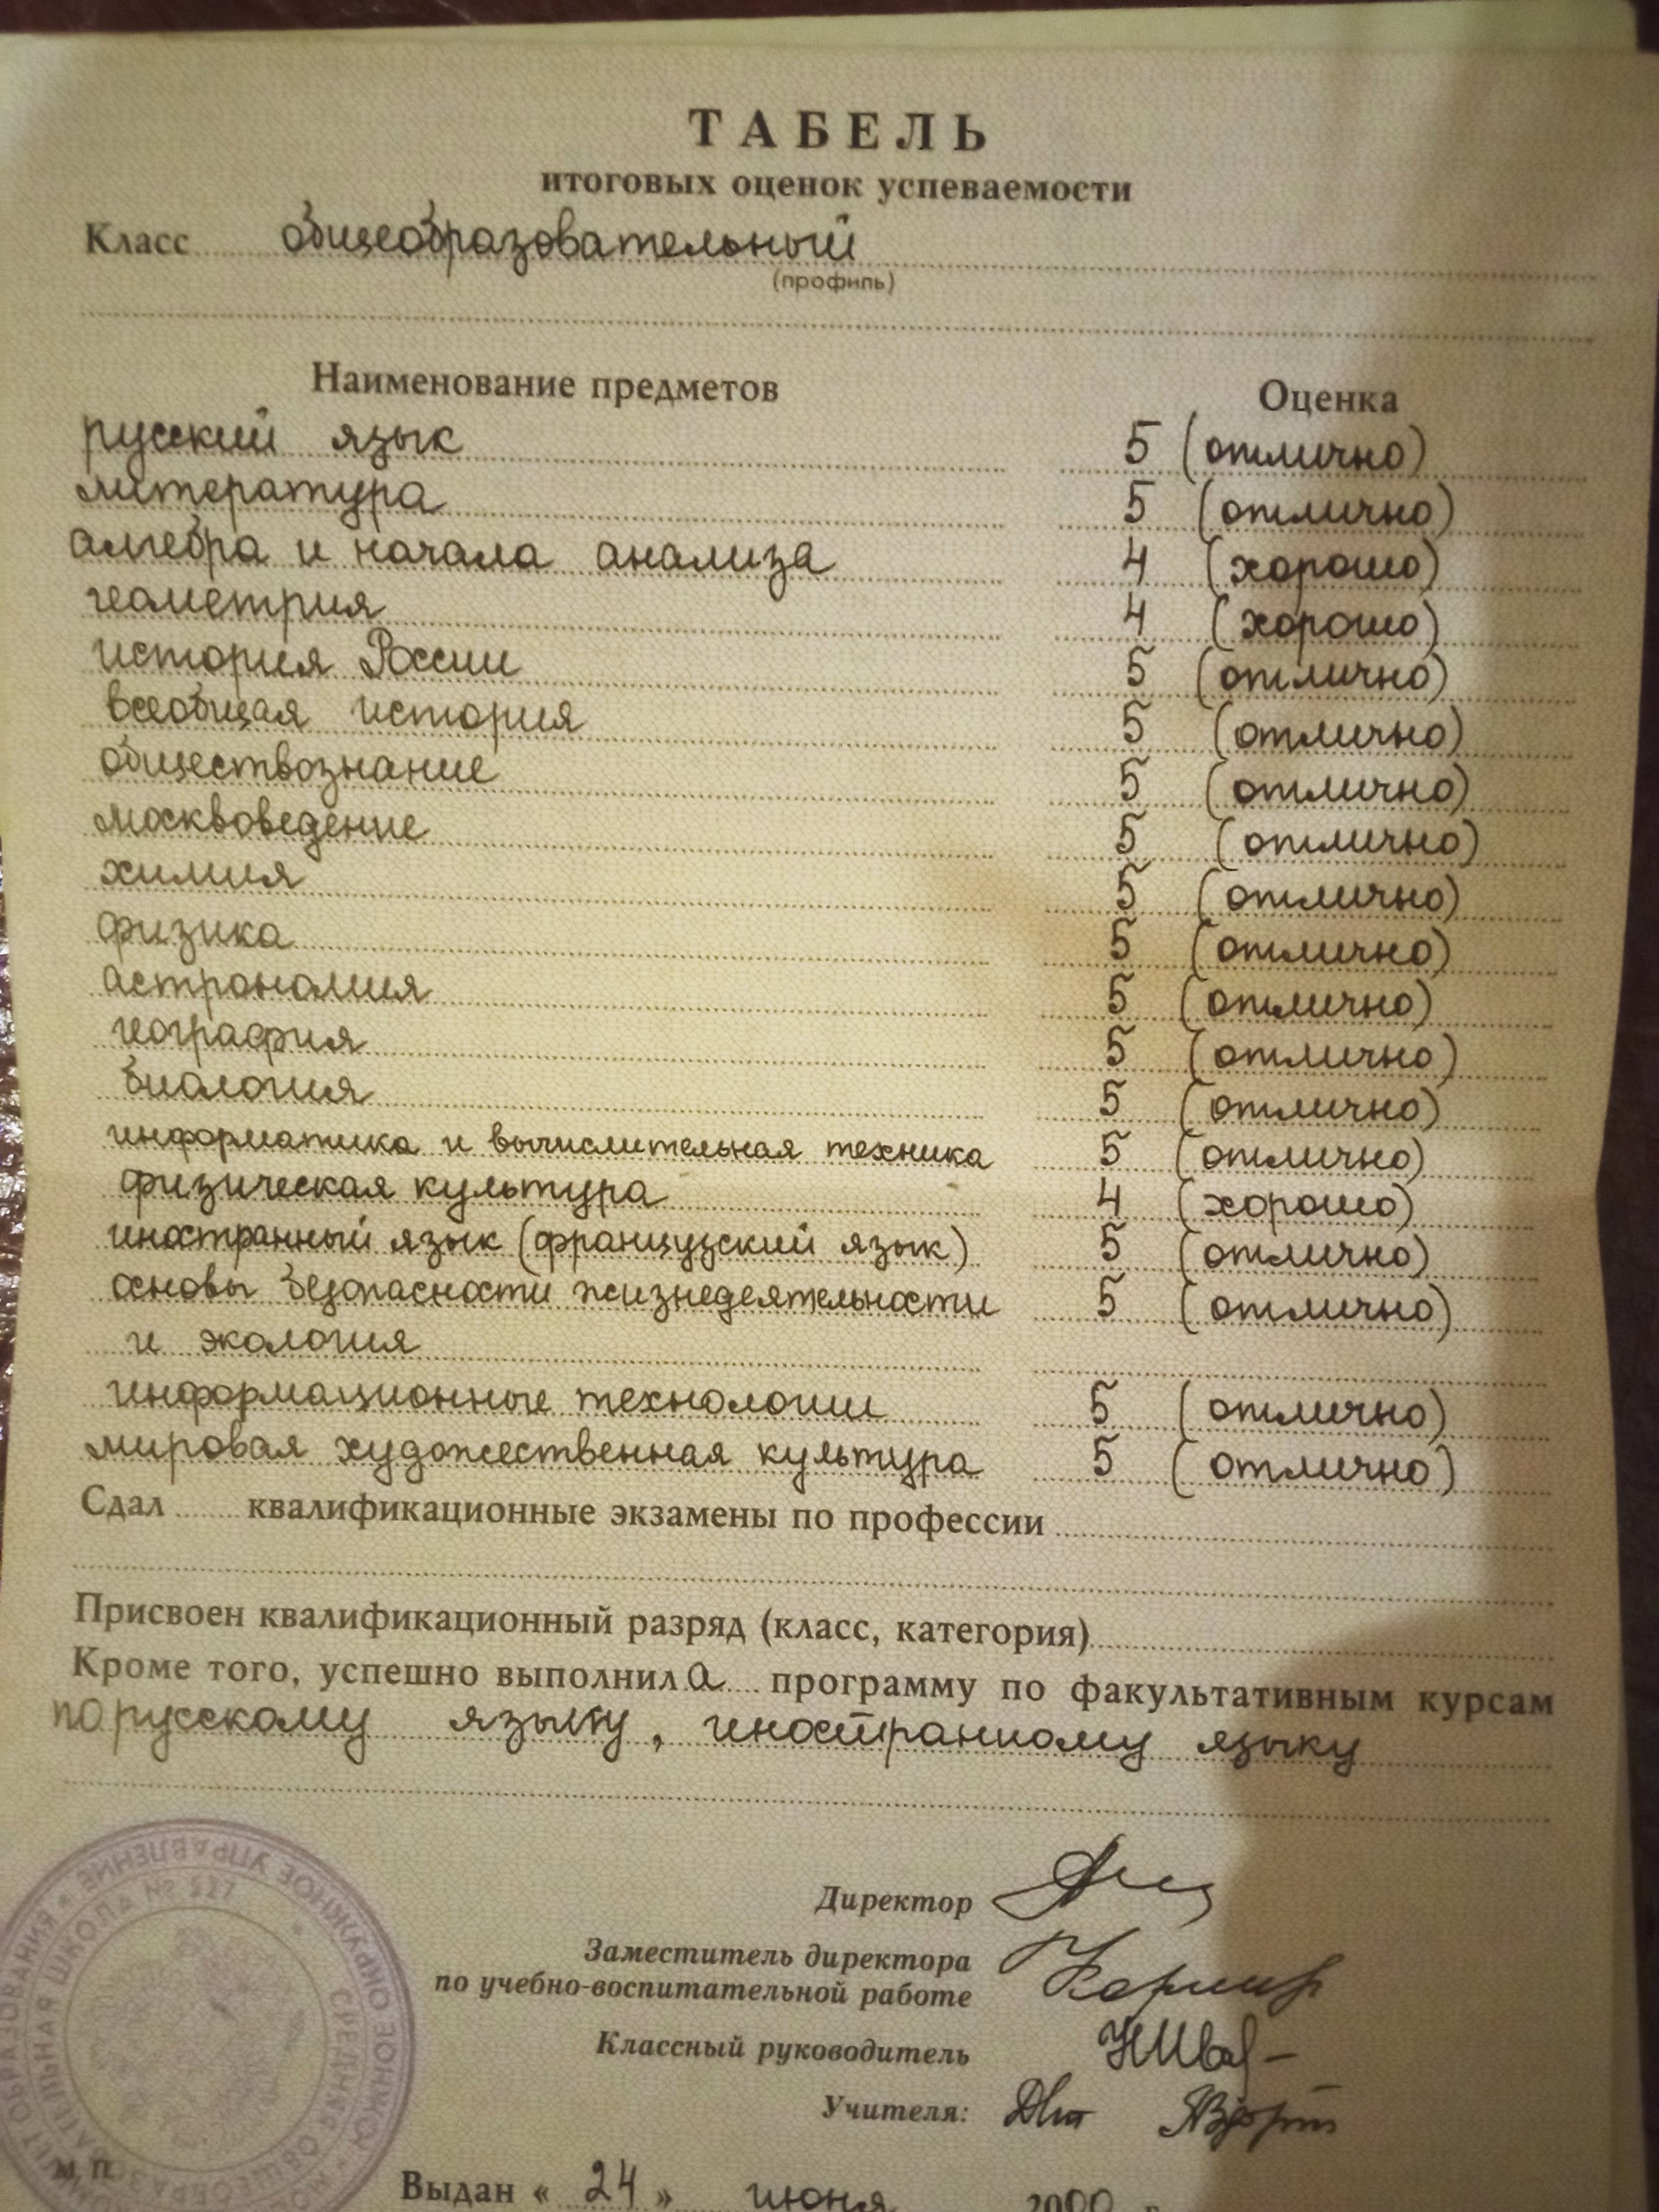 ТАБЕЛЬ
итоговых оценок успеваемости
Класс общеобразовательный
(профиль)
Наименование предметов Оценка
русский язык 5 (отлично)
литература 5 (отлично)
алгебра и начала анализа 4 (хорошо)
геометрия 4 (хорошо)
история России 5 (отлично)
всеобщая история 5 (отлично)
обществознание 5 (отлично)
москвоведение 5 (отлично)
химия 5 (отлично)
физика 5 (отлично)
астрономия 5 (отлично)
география 5 (отлично)
биология 5 (отлично)
информатика и вычислительная техника 5 (отлично)
физическая культура 4 (хорошо)
иностранный язык (французский язык) 5 (отлично)
основы безопасности жизнедеятельности 5 (отлично)
и экология
информационные технологии 5 (отлично)
мировая художественная культура 5 (отлично)
Сдал квалификационные экзамены по профессии
Присвоен квалификационный разряд (класс, категория)
Кроме того, успешно выполнила программу по факультативным курсам
по русскому языку, иностранному языку
Директор
Заместитель директора
по учебно-воспитательной работе
Классный руководитель
Учителя:
ЮЖНОЕ ОКРУЖНОЕ УПРАВЛЕНИЕ
ОБРАЗОВАНИЯ
СРЕДНЯЯ
ШКОЛА № 527
М. П.
Выдан « 24 » июня 2000 г.